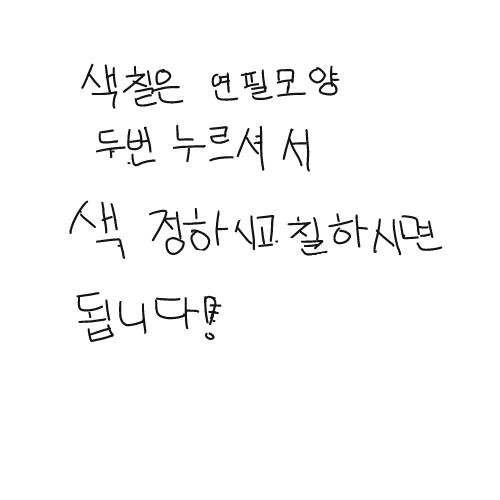 색칠은 연필모양
두번 누르셔서
색 정하시고 칠하시면
됩니다!